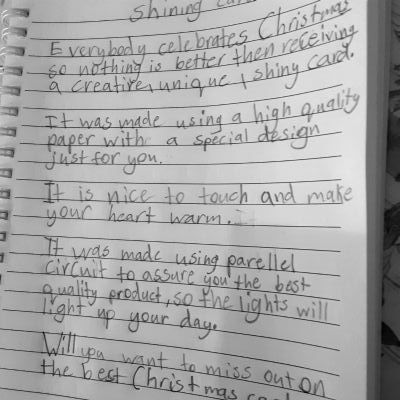 Shining
Everybody celebrates Christmas
so nothing is better then receiving
a creative, unique, shiny card.
It was made using a high quality
paper with a special design
just for you.
It is nice to touch and make
your heart warm.
It was made using parellel
circuit to assure you the best
quality product, so the lights will
light up your day.
Will you want to miss out on
the best Christmas